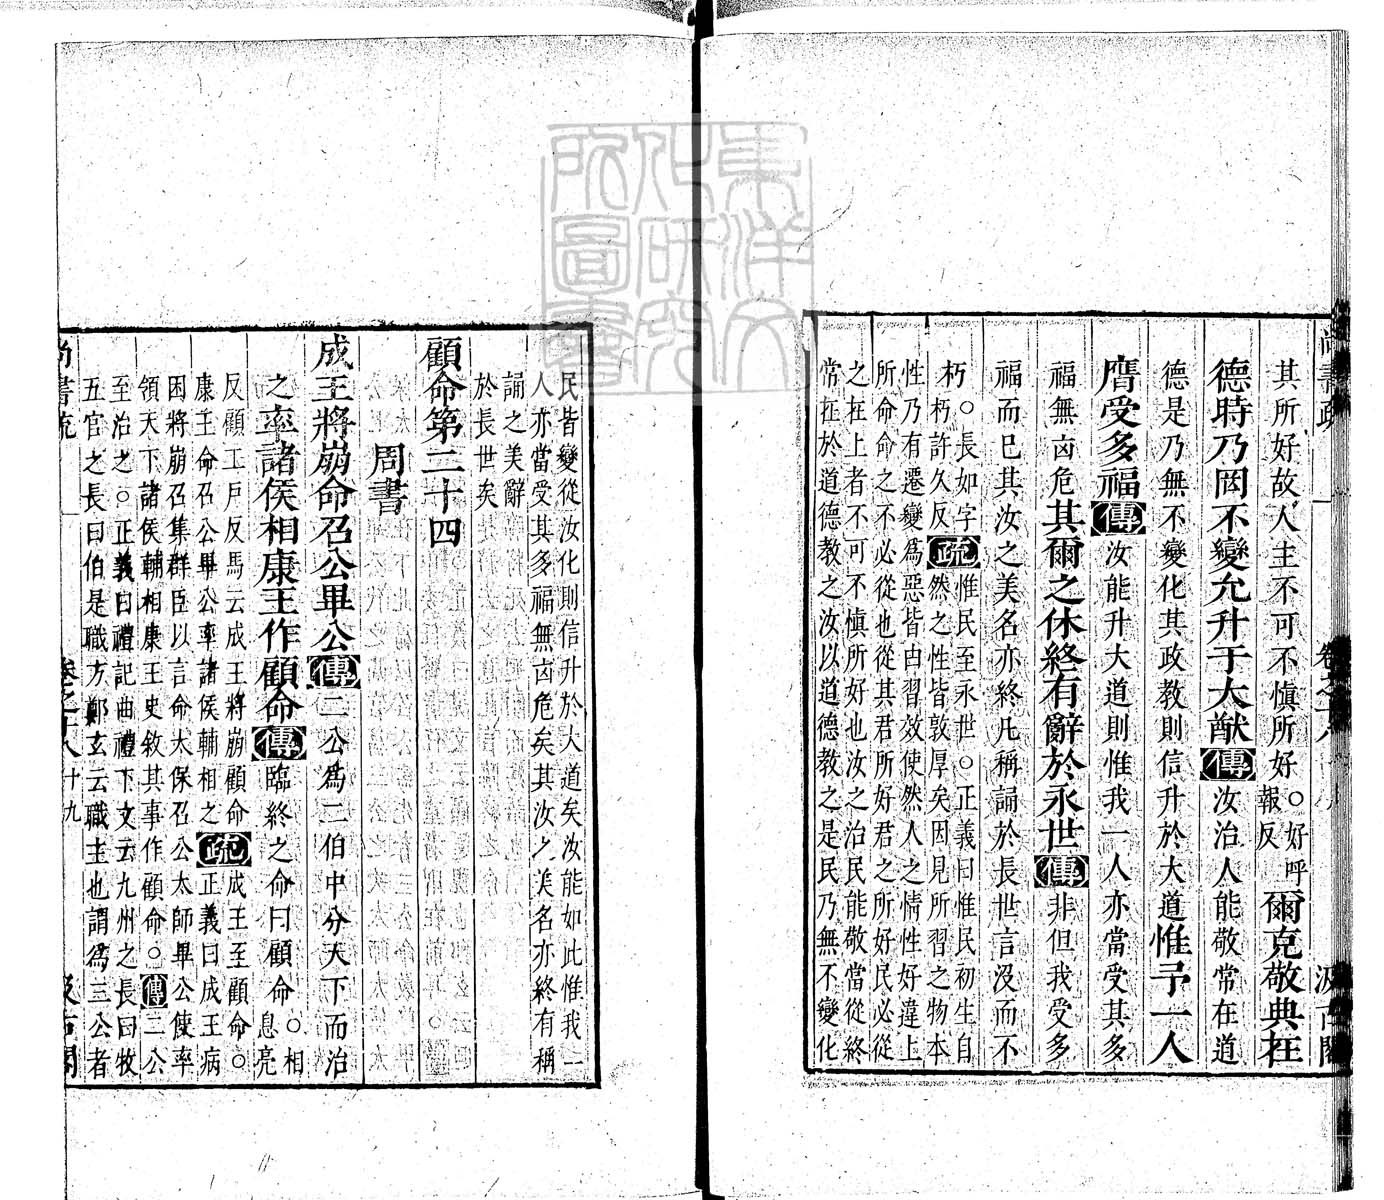 其所好故人主不可不愼所好○好呼報反爾克敬典在
德時乃罔不變允升于大猷傳汝治人能敬常在道
德是乃無不變化其政教則信升於大道惟予一人
膺受多福傳汝能升大道則惟我一人亦當受其多
福無凶危其爾之休終有辭於永世傳非但我受多
福而已其汝之美名亦終凡稱誦於長世言沒而不
朽○長如字朽許久反疏惟民至永世○正義曰惟民初生自然之性皆敦厚矣因見所習之物本
性乃有遷變爲惡皆由習效使然人之情性好違上所命命之不必從也從其君所好君之所好民必從
之在上者不可不愼所好也汝之治民能敬當從終常在於道德教之汝以道德教之是民乃無不變化
民皆變從汝化則信升於大道矣汝能如此惟我一人亦當受其多福無凶危矣其汝之美名亦終有稱
誦之美辭於長世矣
顧命第二十四
周書
成王將崩命召公畢公傳二公爲二伯中分天下而治
之率諸侯相康王作顧命傳臨終之命曰顧命○相息亮
反顧工戶反馬云成王將崩顧命康王命召公畢公率諸侯輔相之疏成王至顧命○正義曰成王病
因將崩召集群臣以言命太保召公太師畢公使率領天下諸侯輔相康王史敘其事作顧命○傳二公
至治之○正義曰禮記曲禮下文云九州之長曰牧五官之長曰伯是職方鄭玄云職主也謂爲三公者
尚書疏 卷之十八 十九 汲古閣